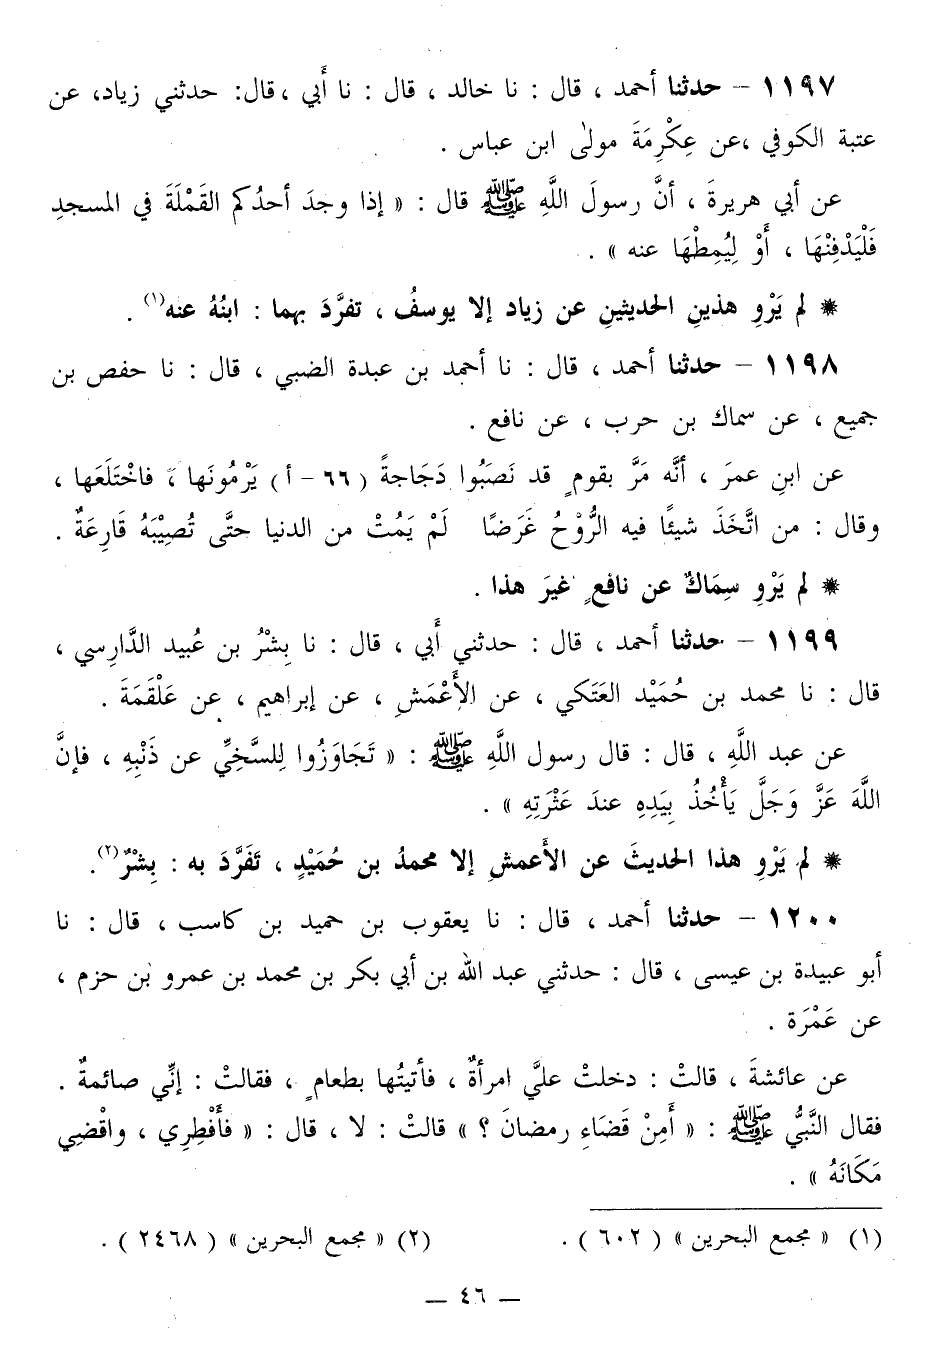 ١١٩٧ – حدثنا أحمد ، قال : نا خالد ، قال : نا أَبي ، قال: حدثني زياد، عن
عتبة الكوفي ،عن عِكْرِمَةَ مولىٰ ابن عباس .
عن أبي هريرةَ ، أنَّ رسولَ اللَّهِ ﷺ قال : « إذا وجدَ أحدُكم القَمْلَةَ في المسجدِ
فَلْيَدْفِنْهَا ، أَوْ لِيُمِطْهَا عنه » .
* لم يَرْوِ هذين الحديثينِ عن زياد إلا يوسفُ ، تفرَّدَ بهما : ابنُهُ عنه(١) .
١١٩٨ – حدثنا أحمد ، قال : نا أحمد بن عبدة الضبي ، قال : نا حفص بن
جميع ، عن سماك بن حرب ، عن نافع .
عن ابنِ عمرَ ، أنَّه مَرَّ بقومٍ قد نَصَبُوا دَجَاجةً ( ٦٦ – أ ) يَرْمُونَها ، فاخْتَلَعَها ،
وقال : من اتَّخَذَ شيئًا فيه الرُّوْحُ غَرَضًا لَمْ يَمُتْ من الدنيا حتَّى تُصِيْبَهُ قَارِعَةٌ .
* لم يَرْوِ سِمَاكٌ عن نافعٍ غيرَ هذا .
١١٩٩ – حدثنا أحمد ، قال : حدثني أَبي ، قال : نا بِشْرُ بن عُبيد الدَّارِسي ،
قال : نا محمد بن حُمَيْد العَتَكي ، عن الأَعْمَشِ ، عن إبراهيم ، عن عَلْقَمَةَ .
عن عبد اللَّهِ ، قال : قال رسول اللَّهِ ﷺ : « تَجَاوَزُوا لِلسَّخِيِّ عن ذَنْبِهِ ، فإنَّ
اللَّهَ عَزَّ وَجَلَّ يَأْخُذُ بِيَدِهِ عندَ عَثْرَتِهِ » .
* لم يَرْوِ هذا الحديثَ عن الأَعمشِ إلا محمدُ بن حُمَيْدٍ ، تَفَرَّدَ به : بِشْرٌ(٢).
١٢٠٠ – حدثنا أحمد ، قال : نا يعقوب بن حميد بن كاسب ، قال : نا
أبو عبيدة بن عيسى ، قال : حدثني عبد الله بن أبي بكر بن محمد بن عمرو بن حزم ،
عن عَمْرَة .
عن عائشةَ ، قالتْ : دخلتْ عليَّ امرأةٌ ، فأتيتُها بطعامٍ ، فقالتْ : إنِّي صائمةٌ .
فقال النَّبيُّ ﷺ : « أَمِنْ قَضَاءِ رمضانَ ؟ » قالتْ : لا ، قال : « فأَفْطِرِي ، واقْضِي
مَكَانَهُ » .
(١) « مجمع البحرين » ( ٦٠٢ ) . (٢) « مجمع البحرين » ( ٢٤٦٨ ) .
— ٤٦ —